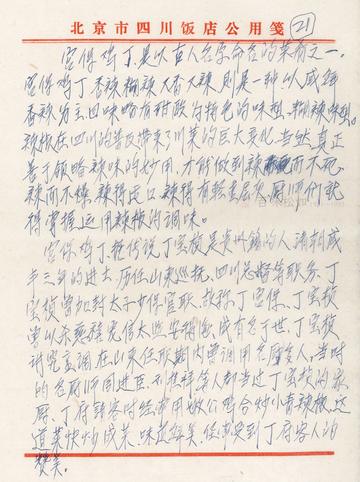 北京市四川饭店公用笺
21
宫保鸡丁,是以真人名字命名的菜肴之一。
宫保鸡丁香辣糊辣大香大辣,则是一种以咸鲜
香辣为主,四味略有甜酸为特色的味型,糊辣味型。
辣椒在四川的普及带来了川菜的巨大变化,当然真正
善于领略辣味的妙用,才能做到辣而不死,
辣而不燥,辣得适口,辣得有轻重层次,厨师们就
得掌握运用辣椒的调味。
宫保鸡丁,据传说丁宝桢是贵州镇的人,清朝咸
丰三年的进士,历任山东巡抚,四川总督等职务,丁
宝桢曾加封太子少保官职,故称丁宫保,丁宝桢
曾以杀慈禧宠信太监安得海,成有名于世,丁宝桢
讲究烹调,在山东任职期内曾调用名厨多人,当时
的名厨师周进臣,刘桂祥等人都当过丁宝桢的家
厨。丁府请客时经常用嫩公鸡合炒小青辣椒,这
道菜快炒成菜,味道鲜美,经常受到丁府客人的
赞美。